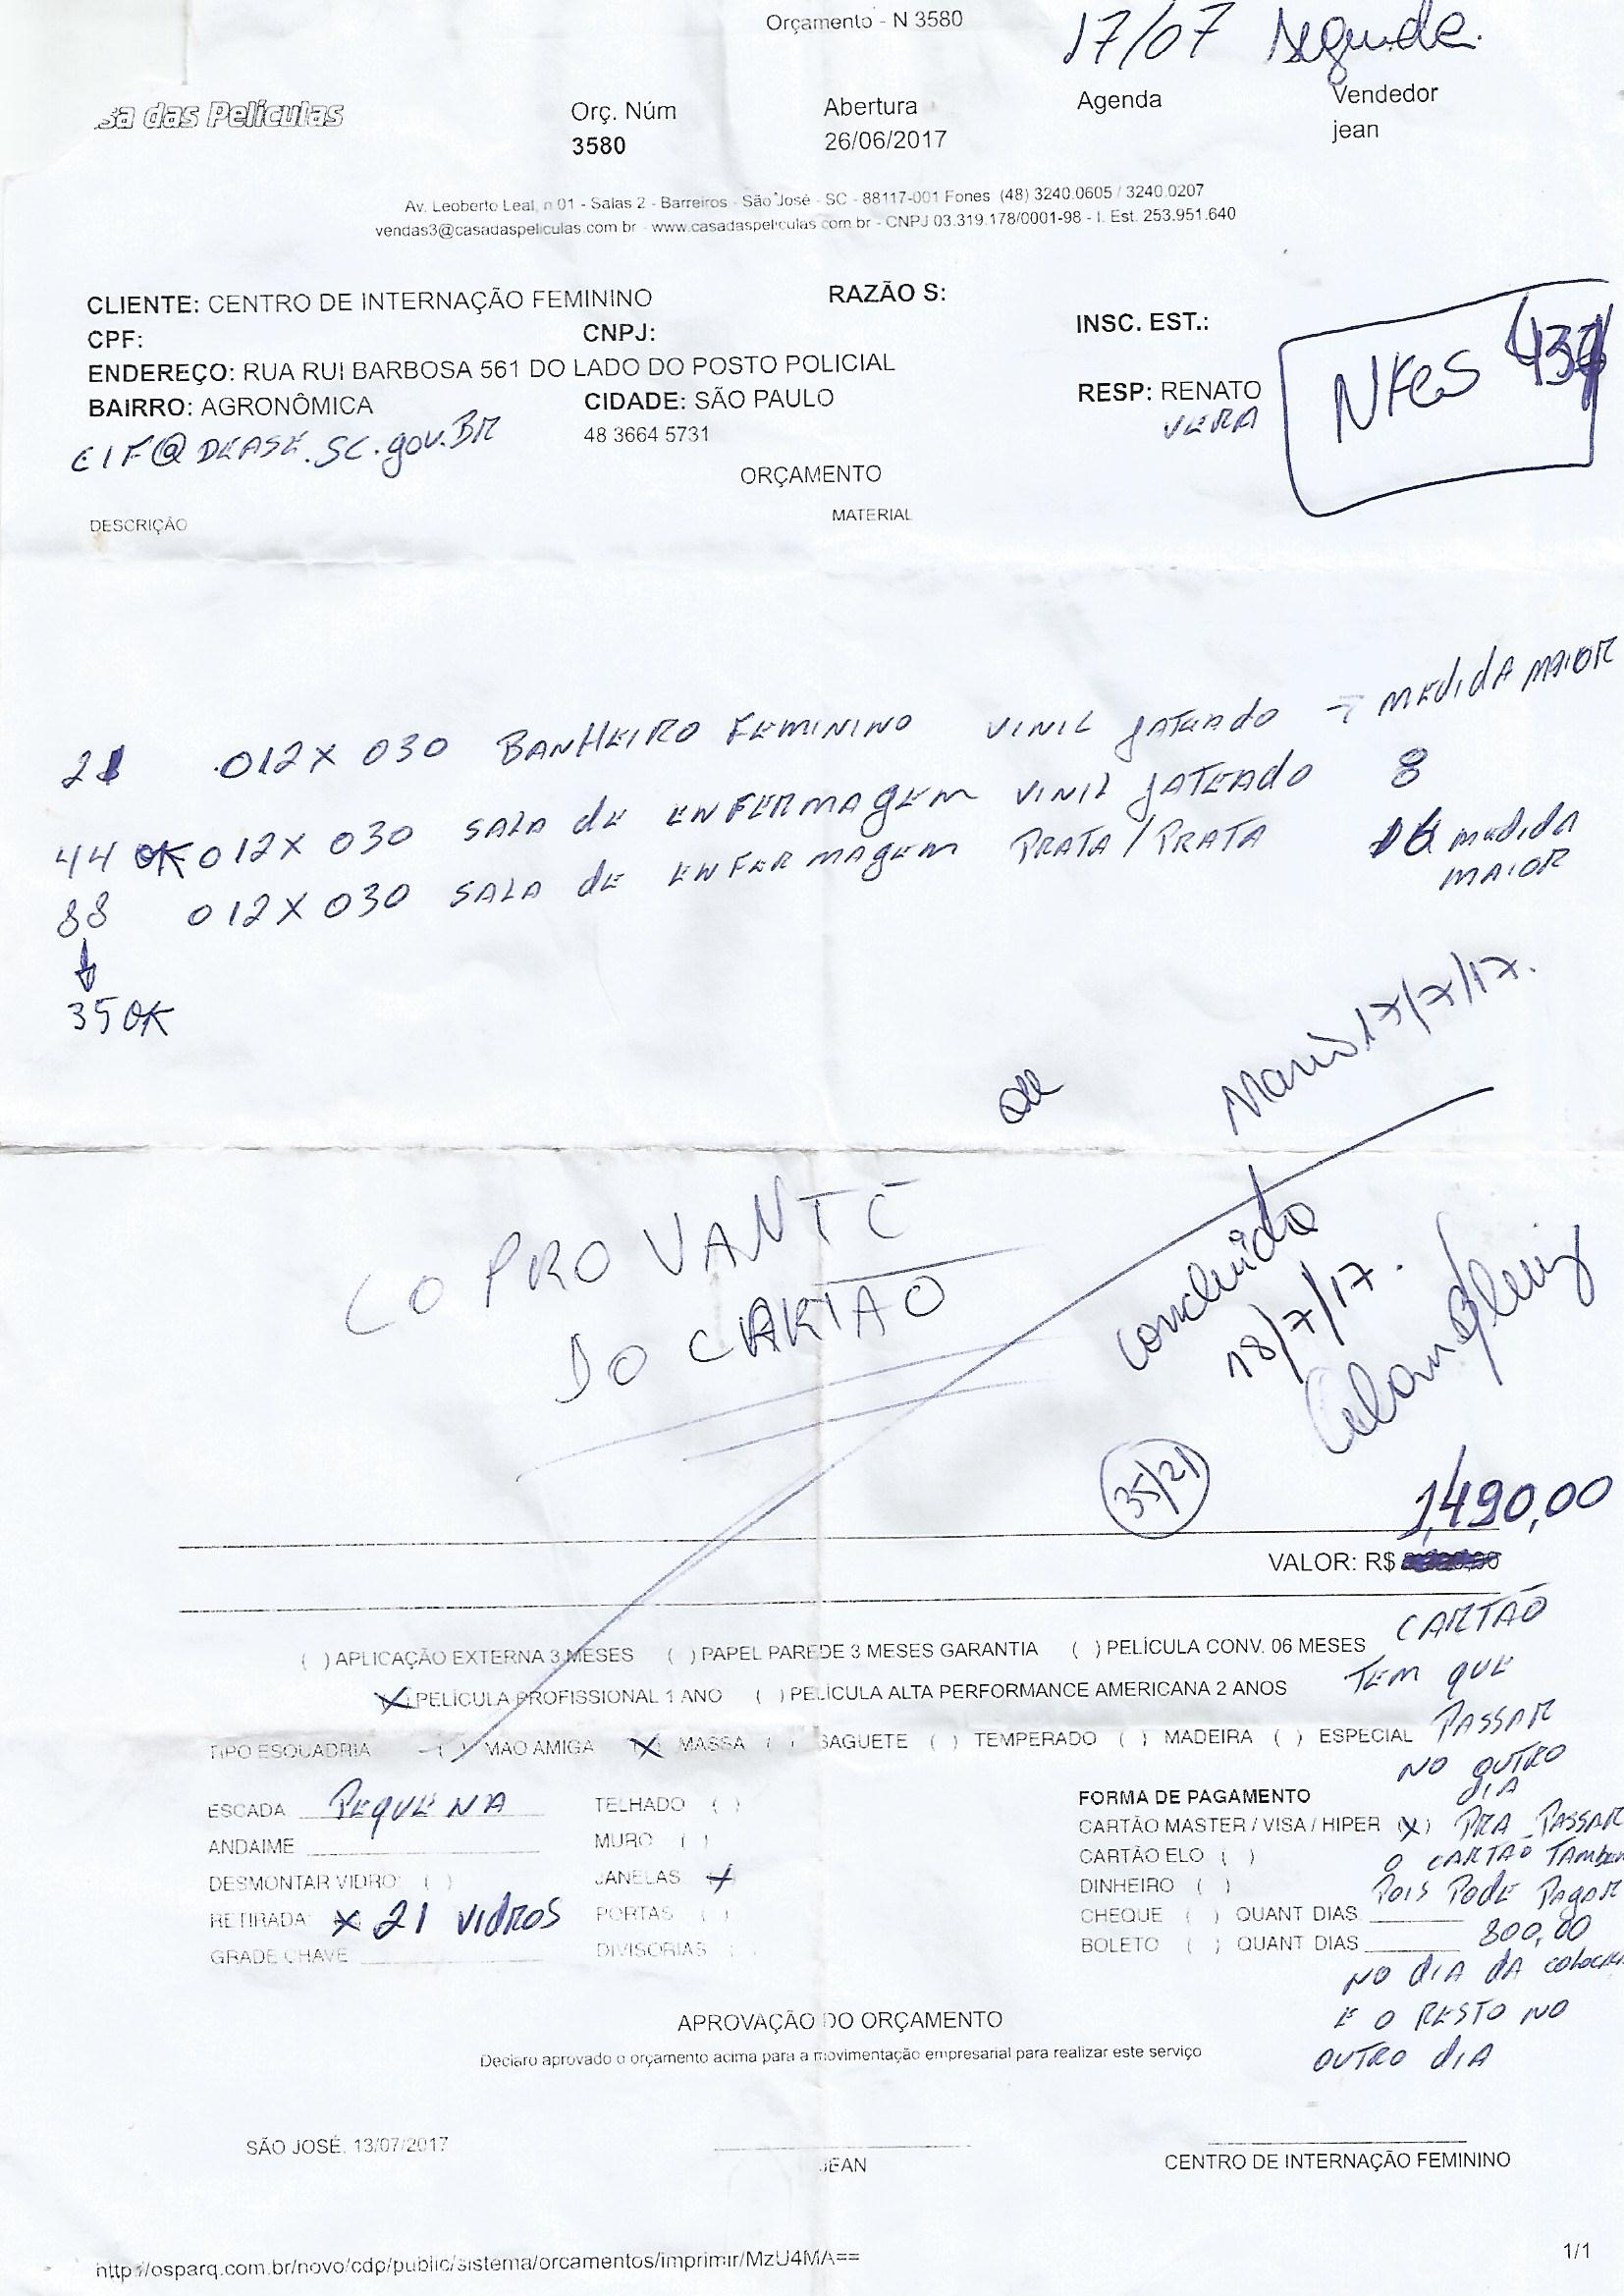 Orçamento - N 3580
17/07 Segunda.
sa das Películas
Orç. Núm
3580
Abertura
26/06/2017
Agenda
Vendedor
jean
Av. Leoberto Leal, n 01 - Salas 2 - Barreiros - São José - SC - 88117-001 Fones (48) 3240.0605 / 3240.0207
vendas3@casadaspeliculas.com br - www.casadaspeliculas com br - CNPJ 03.319.178/0001-98 - I. Est. 253.951.640
CLIENTE: CENTRO DE INTERNAÇÃO FEMININO
RAZÃO S:
CPF:
CNPJ:
INSC. EST.:
ENDEREÇO: RUA RUI BARBOSA 561 DO LADO DO POSTO POLICIAL
BAIRRO: AGRONÔMICA
CIDADE: SÃO PAULO
RESP: RENATO
VERA
48 3664 5731
CIF@DEASE.SC.gov.BR
ORÇAMENTO
DESCRIÇÃO
MATERIAL
21 012X 030 BANHEIRO FEMININO VINIL JATEADO MEDIDA MAIOR
44 OK 012X 030 SALA dE ENFERMAGEM VINIL JATEADO 8
88 012X030 SALA dE ENFERMAGEM PRATA/PRATA 16 MEDIDA
MAIOR
35 OK
Mario 17/7/17.
COPROVANTE
DO CARTAO
concluida
18/7/17.
35/21
1,490,00
VALOR: R$
( ) APLICAÇÃO EXTERNA 3 MESES ( ) PAPEL PAREDE 3 MESES GARANTIA ( ) PELÍCULA CONV. 06 MESES
(X) PELÍCULA PROFISSIONAL 1 ANO ( ) PELÍCULA ALTA PERFORMANCE AMERICANA 2 ANOS
TIPO ESQUADRIA ( ) MÃO AMIGA (X) MASSA ( ) BAGUETE ( ) TEMPERADO ( ) MADEIRA ( ) ESPECIAL
CARTÃO
TEM QUE
PASSAR
NO OUTRO
dIA
PRA PASSAR
O CARTÃO TAMBEM
POIS PODE PAGAR
800,00
NO dIA DA COLOCA
E O RESTO NO
OUTRO dIA
ESCADA PEQUENA
TELHADO ( )
ANDAIME
MURO ( )
DESMONTAR VIDRO ( )
JANELAS X
RETIRADA X 21 VIDROS
PORTAS ( )
GRADE CHAVE
DIVISORIAS ( )
FORMA DE PAGAMENTO
CARTÃO MASTER / VISA / HIPER (X)
CARTÃO ELO ( )
DINHEIRO ( )
CHEQUE ( ) QUANT DIAS
BOLETO ( ) QUANT DIAS
APROVAÇÃO DO ORÇAMENTO
Declaro aprovado o orçamento acima para a movimentação empresarial para realizar este serviço
SÃO JOSÉ. 13/07/2017
JEAN
CENTRO DE INTERNAÇÃO FEMININO
http://osparq.com.br/novo/cdp/public/sistema/orcamentos/imprimir/MzU4MA==
1/1